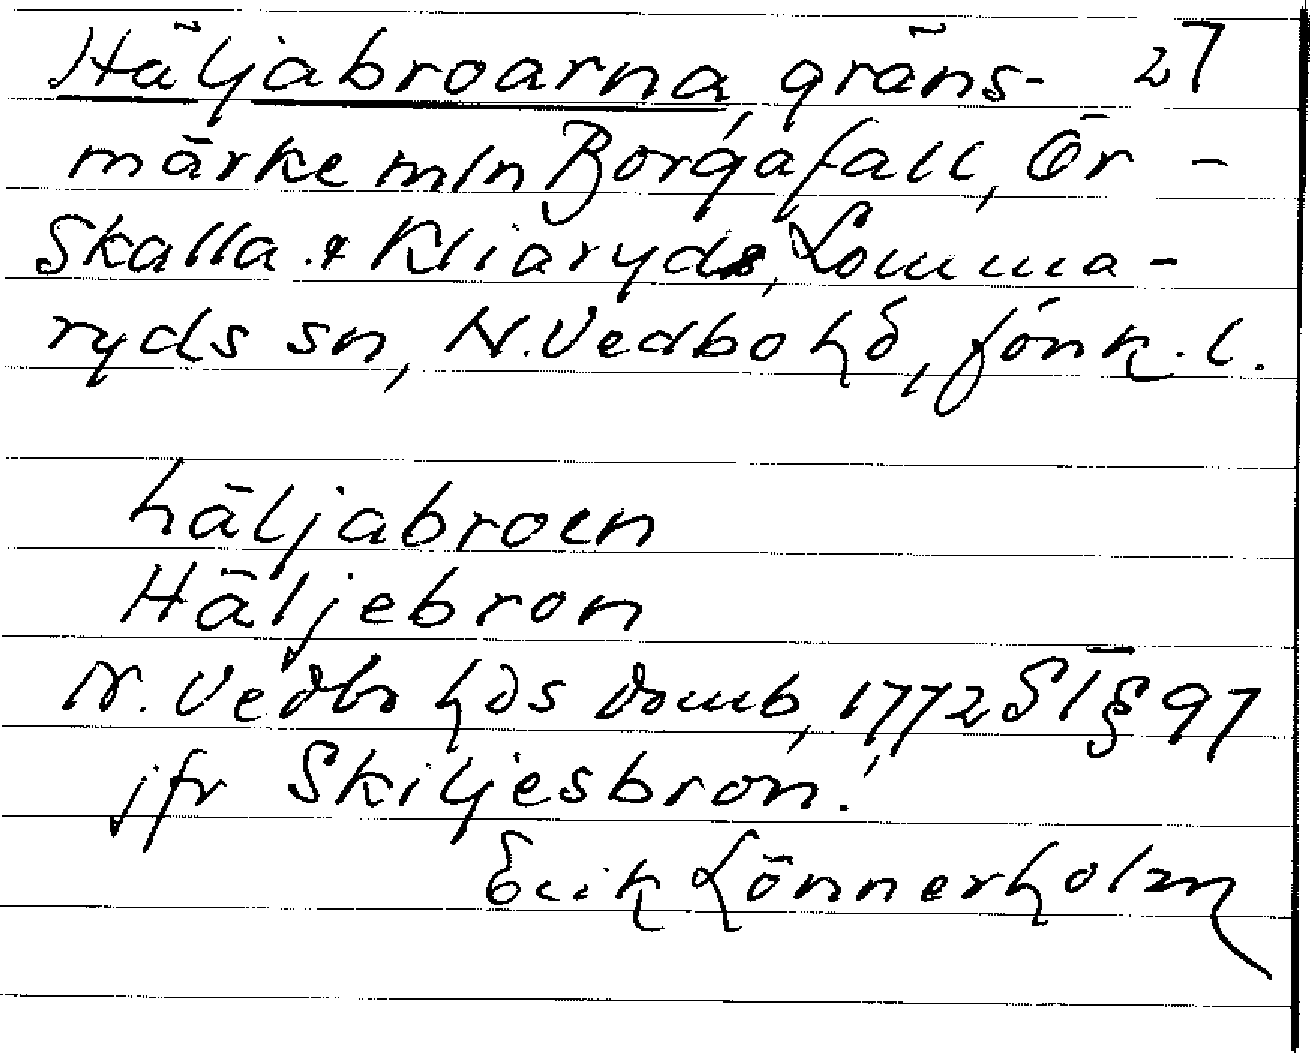 Häljabroarna, gräns- 27
märke mln Borgafall, Ör-
Skalla & Kliaryds, Lomma-
ryds sn, N. Vedbo hd, Jönk. l.
häljabroen
Häljebron
N. Vedbo hds domb, 1772 S I § 97
jfr Skiljesbron!
Erik Lönnerholm